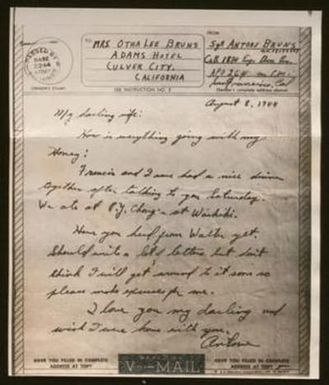 TO
MRS. OTHA LEE BRUNS
ADAMS HOTEL
CULVER CITY,
CALIFORNIA
FROM
Sgt ANTON BRUNS
SEE INSTRUCTION NO. 2
August 8, 1944
My darling wife:
How is everything going with my
Honey?
Francis and I sure had a nice dinner
together after talking to you Saturday.
We ate at P.Y. Chong's at Waikiki.
Have you heard from Walter yet.
Should write a lot of letters but don't
think I will get around to it soon so
please make excuses for me.
I love you my darling and
wish I were home with you.
HAVE YOU FILLED IN COMPLETE
ADDRESS AT TOP?
V-MAIL
HAVE YOU FILLED IN COMPLETE
ADDRESS AT TOP?